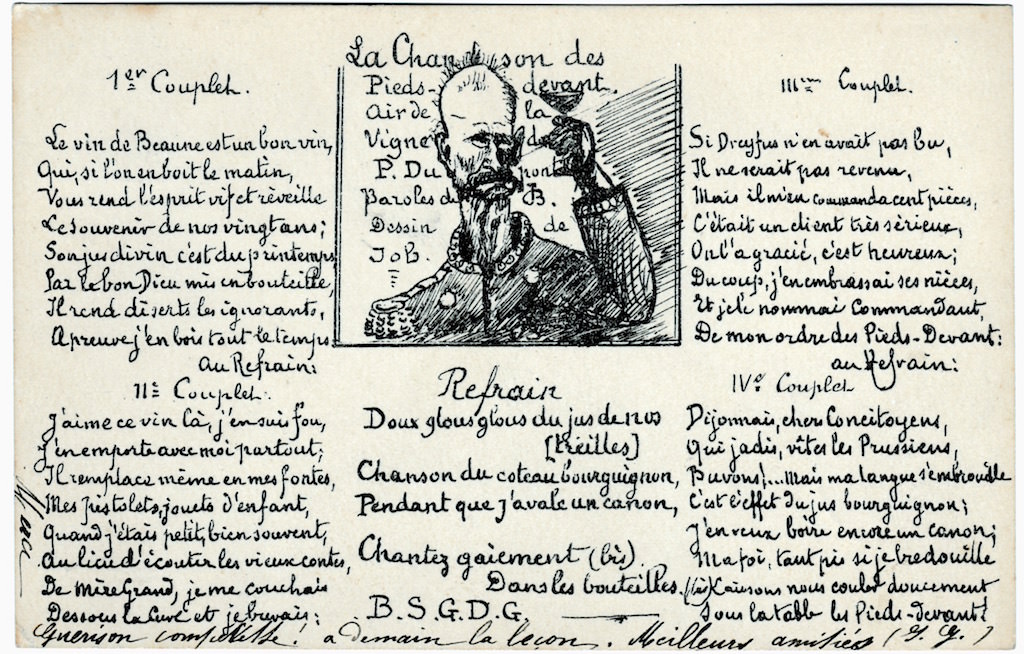 La Chanson des
Pieds-devant.
Air de la
Vigne de
P. Dupont
Paroles de B.
Dessin de
Job.
1er Couplet.
Le vin de Beaune est un bon vin,
Qui, si l'on en boit le matin,
Vous rend l'esprit vif et réveille
Le souvenir de nos vingt ans;
Son jus divin c'est du printemps
Par le bon Dieu mis en bouteille,
Il rend diserts les ignorants,
A preuve j'en bois tout le temps
au Refrain:
IIe Couplet.
J'aime ce vin là, j'en suis fou,
J'en emporte avec moi partout;
Il remplace même en mes fontes,
Mes pistolets, jouets d'enfant,
Quand j'étais petit, bien souvent,
Au lieu d'écouter les vieux contes,
De Mère Grand, je me couchais
Dessous la Cuve et je buvais:
Refrain
Doux glous glous du jus de nos
[treilles]
Chanson du coteau bourguignon,
Pendant que j'avale un canon,
Chantez gaiement (bis)
Dans les bouteilles. (bis)
B.S.G.D.G.
IIIem Couplet.
Si Dreyfus n'en avait pas bu,
Il ne serait pas revenu,
Mais il m'en commanda cent pièces,
C'était un client très sérieux,
On l'a gracié, c'est heureux;
Du coup, j'en embrassai ses nièces,
Et je le nommai Commandant,
De mon ordre des Pieds-Devant:
au Refrain:
IVe Couplet
Dijonnais, chers Concitoyens,
Qui jadis, vîtes les Prussiens,
Buvons!... Mais ma langue s'embrouille
C'est l'effet du jus bourguignon;
J'en veux boire encore un canon;
Ma foi, tant pis si je bredouille
Laissons nous couler doucement
Sous la table les Pieds-devant!
Guérison complète! à demain la leçon. Meilleurs amitiés (G. G.)